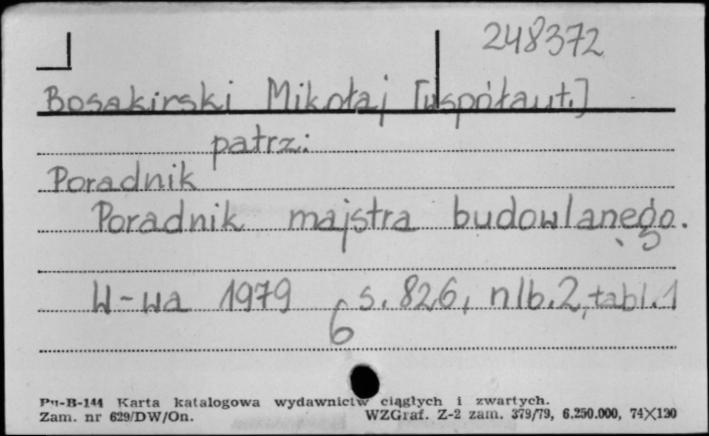 248372
Bosakirski Mikołaj [współaut.]
patrz:
Poradnik
Poradnik majstra budowlanego.
W-wa 1979 s. 826, nlb. 2, tabl. 1
6
Pu-B-144 Karta katalogowa wydawnictw ciągłych i zwartych.
Zam. nr 629/DW/On. WZGraf. Z-2 zam. 379/79, 6.250.000, 74×120